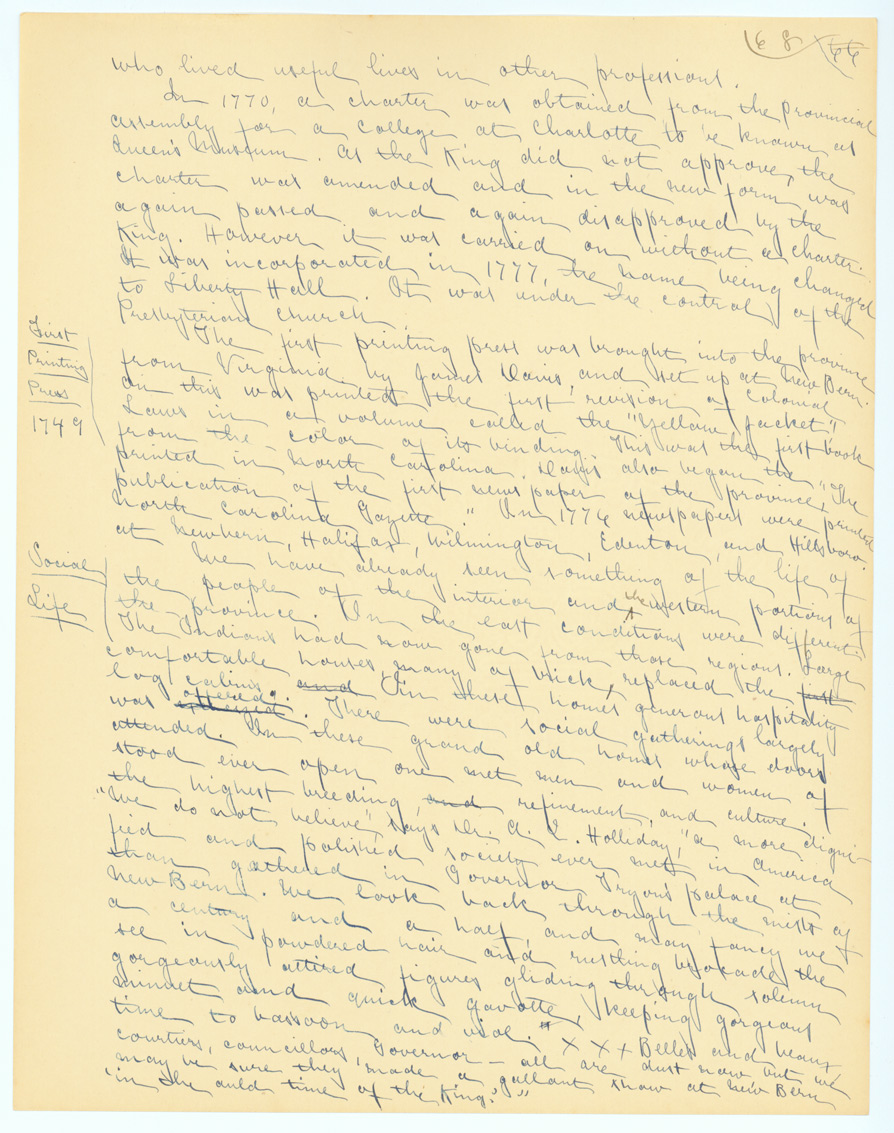 68 66
who lived useful lives in other professions.
In 1770, a charter was obtained from the Provincial
assembly for a college at Charlotte to be known as
Queen's Museum. As the King did not approve, the
charter was amended and in the new form was
again passed and again disapproved by the
King. However it was carried on without a charter.
It was incorporated in 1777, the name being changed
to Liberty Hall. It was under the control of the
Presbyterian church.
First
Printing
Press
1749
The first printing press was brought into the province
from Virginia, by James Davis, and set up at New Bern.
On this was printed the first revision of Colonial
Laws in a volume called the "Yellow Jacket"
from the color of its binding. This was the first book
printed in North Carolina. Davis also began the
publication of the first newspaper of the province, "The
North Carolina Gazette." In 1776 newspapers were printed
at Newbern, Halifax, Wilmington, Edenton, and Hillsboro.
Social
Life
We have already seen something of the life of
the people of the interior and the western portions of
the province. In the east conditions were different.
The Indians had now gone from those regions. Large
comfortable houses, many of brick, replaced the first
log cabins. and In these homes generous hospitality
was offered. There were social gatherings largely
attended. In these grand old homes whose doors
stood ever open one met men and women of
the highest breeding, and refinement, and culture.
"We do not believe", says Dr. A. Q. Holliday, "a more digni-
fied and polished society ever met in America
than gathered in Governor Tryon's palace at
New Bern. We look back through the mists of
a century and a half, and may fancy we
see in powdered hair and rustling brocade the
gorgeously attired figures gliding through solemn
minuet and quick gavotte, keeping gorgeous
time to bassoon and viol." x x x Belles and beaux,
courtiers, councillors, Governor — all are dust now but we
may be sure they made a gallant show at New Bern
'in the auld time of the King.'"